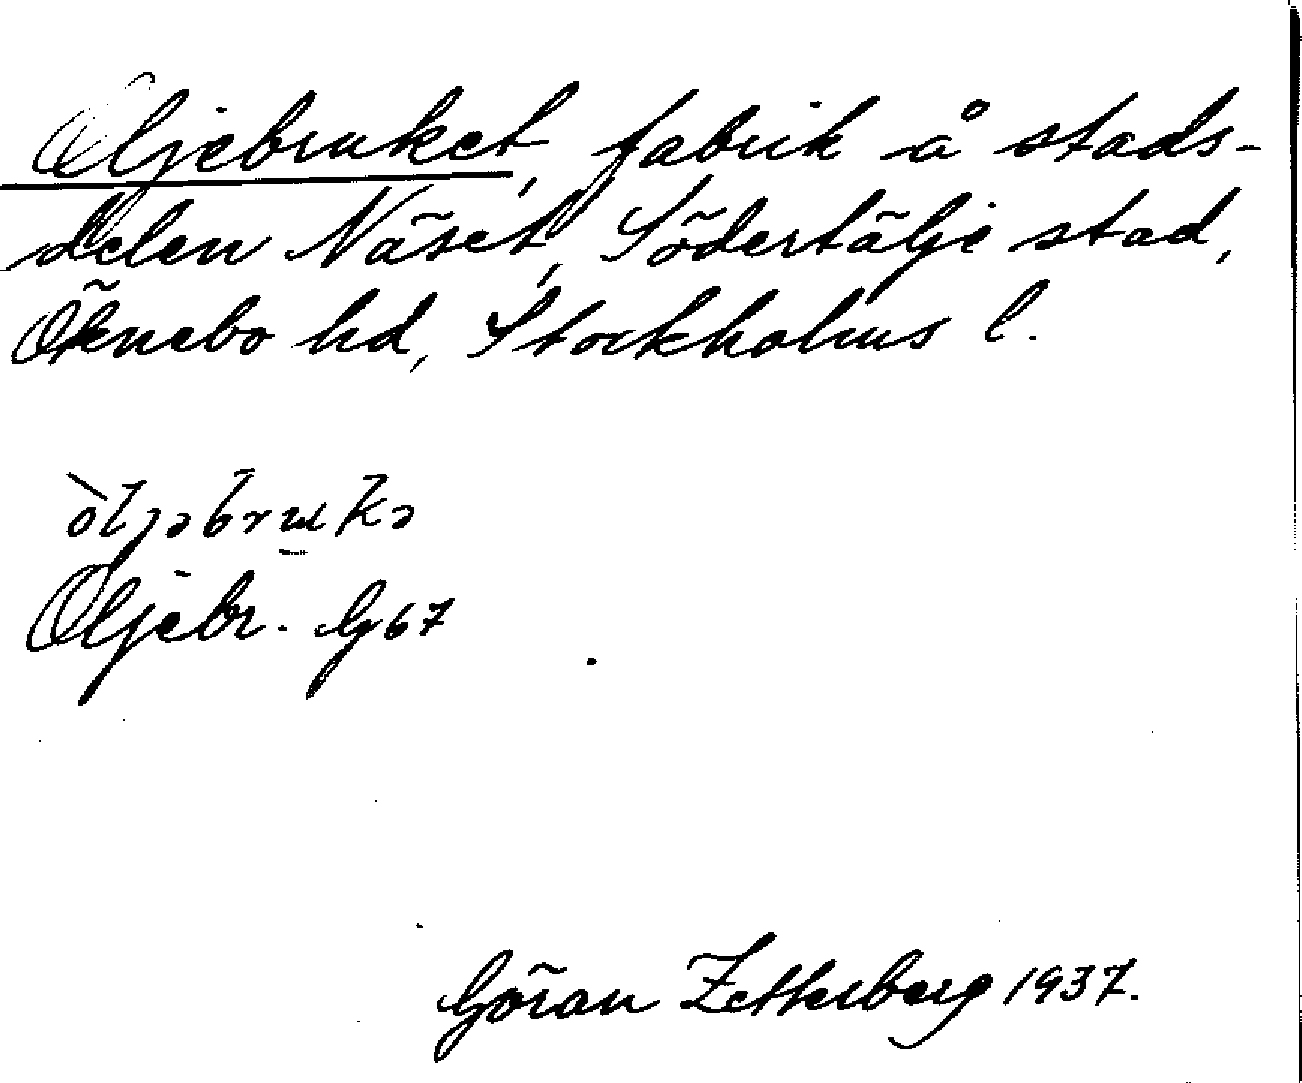 Oljebruket, fabrik å stads-
delen Näset, Södertälje stad,
Öknebo hd, Stockholms l.
òljəbrukə
Oljebr. G 67
Göran Zetterberg 1937.